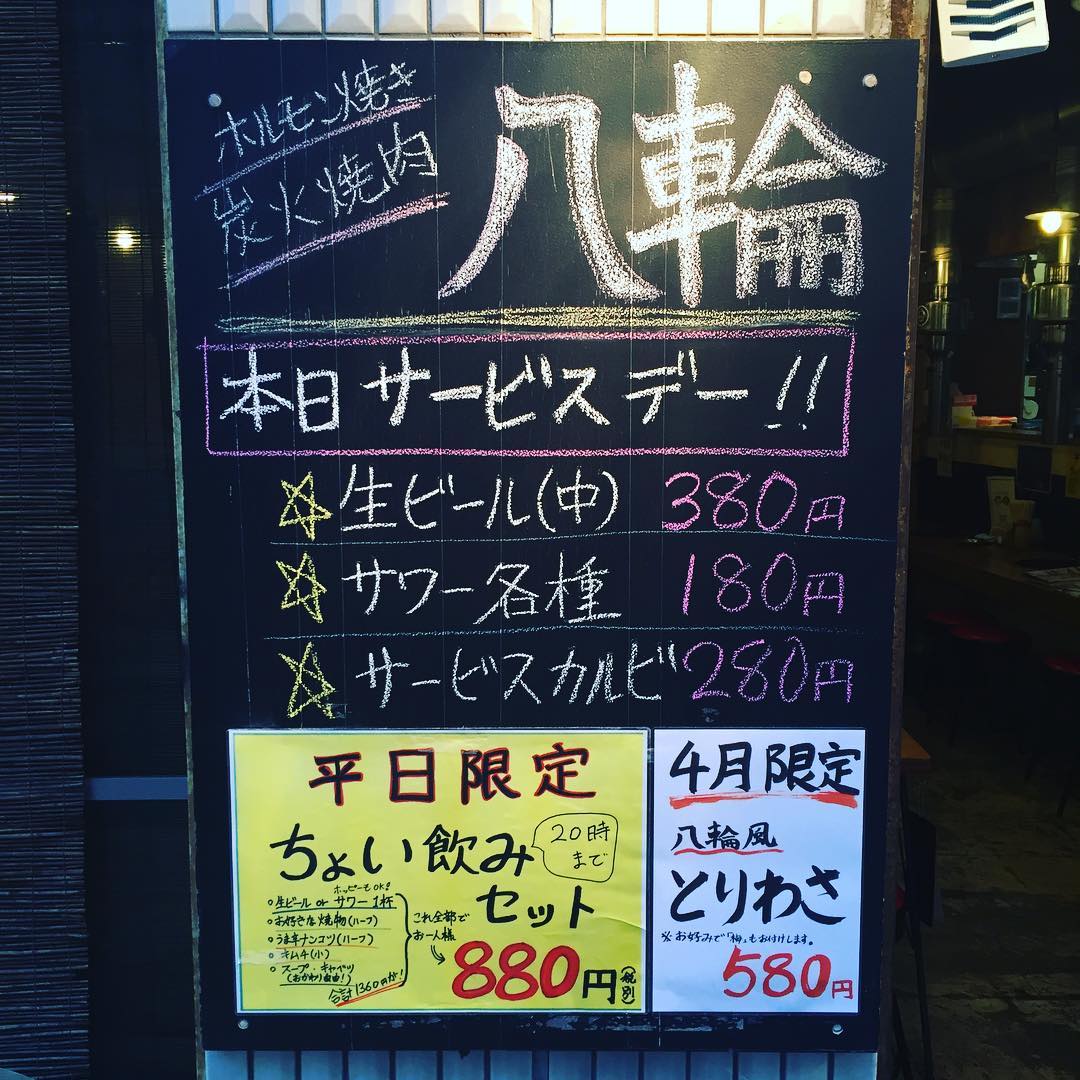 ホルモン焼き
炭火焼肉
八輪
本日サービスデー!!
生ビール(中) 380円
サワー各種 180円
サービスカルビ 280円
平日限定
ちょい飲み
20時
まで
セット
ホッピーもOK!
○生ビール or サワー1杯
○お好きな焼物(ハーフ)
○うま辛ナンコツ(ハーフ)
○キムチ(小)
○スープ・キャベツ
(おかわり自由!)
合計1360円が!
これ全部で
お一人様
880円(税別)
4月限定
八輪風
とりわさ
※お好みで「梅」もお付けします。
580円